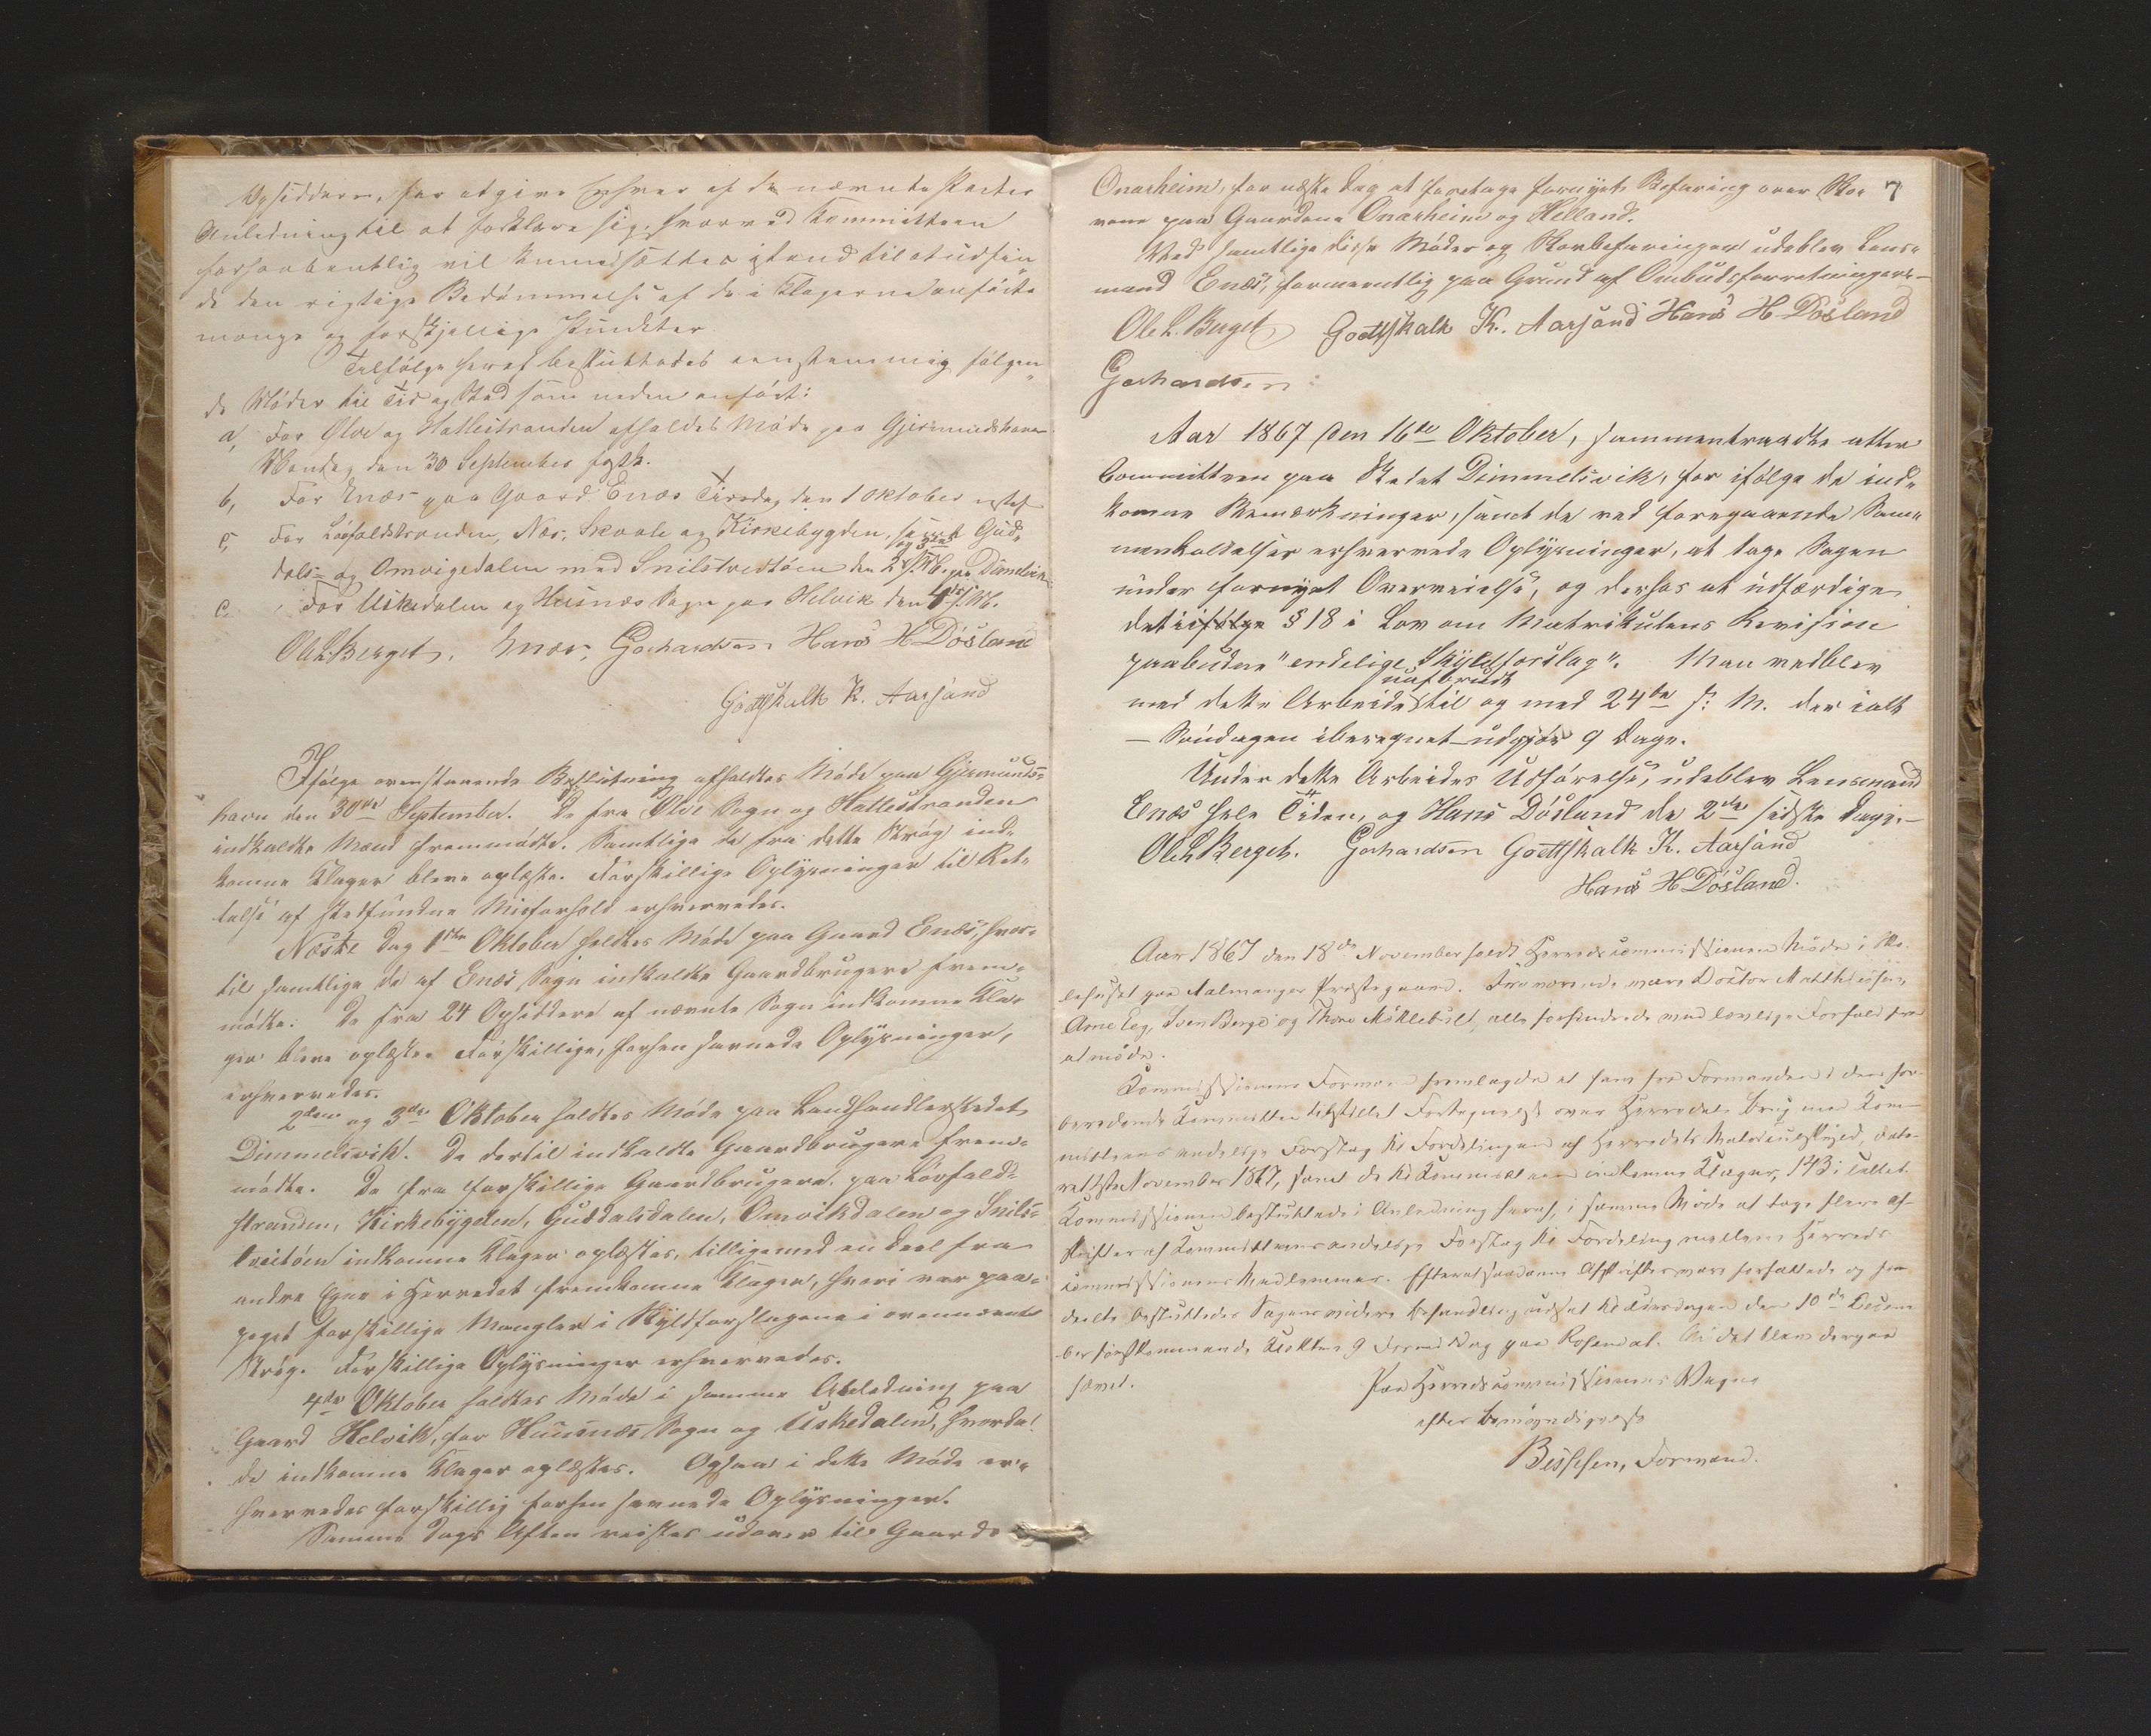 Opsiddere, for at give Enhver af de nævnte Parter
Anledning til at forklare sig, hvorved Kommitteen
forhaabentlig vil kunne sættes istand til at udfin-
de den rigtige Bedømmelse af de i Klagerne anførte
mange og forskjellige Punkter.
Tilfølge heraf besluttedes eenstemmig følgen-
de Møder til Tid og Sted som neden anført:
a, For Ølve og Hatlestranden afholdes Møde paa Gjermundshavn
Mandag den 30 September
b, For Enæs paa Gaard Enæs Tirsdag den 1 Oktober
c, For Løfaldstranden, Næs, Skaale og Kirkebygden, samt Gud-
dals- og Omvigedalen med Snilstvedtøen den 2 og 3de s. M. paa Dimelsvik
c. For Uskedalen og Husnæs Sogn paa Helvik den 4de s. M.
Ole L. Berget. Enæs, Gerhardsen Hans H Døsland
Gottskalk K. Aarsand
Ifølge ovenstaaende Beslutning afholdtes Møde paa Gjermunds-
havn den 30te September. De fra Ølve Sogn og Hatlestranden
indkaldte Mænd fremmødte. Samtlige de fra dette Strøg ind-
komne Klager bleve oplæste. Forskillige Oplysninger til Ret-
telse af stedfundne Misforhold erhvervedes.
Næste Dag 1ste Oktober holdtes Møde paa Gaard Enæs, hvor-
til samtlige de af Enæs Sogn indkaldte Gaardbrugere frem-
mødte. De fra 24 Opsiddere af nævnte Sogn indkomne Kla-
ger bleve oplæste. Forskillige, forhen savnede Oplysninger,
erhvervedes.
2den og 3de Oktober holdtes Møde paa Landhandlerstedet
Dimmelsvik. De dertil indkaldte Gaardbrugere frem-
mødte. De fra forskillige Gaardbrugere paa Løvfald-
stranden, Kirkebygden, Guddalsdalen, Omvikdalen og Snils-
tveitøen indkomne Klager oplæstes, tilligemed en Deel fra
andre Egne i Herredet fremkomne Klager, hvori var paa-
peget forskillige Mangler i Skyldforslagene i ovennævnte
Strøg. Forskillige Oplysninger erhvervedes.
4de Oktober holdtes Møde i samme Anledning paa
Gaard Helvik, for Huusnæs Sogn og Uskedalen, hvorda
de indkomne Klager oplæstes. Ogsaa i dette Møde er-
hvervedes forskillig forhen savnede Oplysninger.
Samme Dags Aften reistes udover til Gaarde
7
Onarheim, for næste Dag at foretage fornyet Befaring over Sko-
vene paa Gaardene Onarheim og Helland.
Ved samtlige disse Møder og Skovbefaringer udeblev Lens-
mand Enæs, formeentlig paa Grund af Ombudsforretninger.
Ole L. Berget Gottskalk K. Aarsand Hans H Døsland
Gerhardsen
Aar 1867 den 16de Oktober, sammentraadte atter
Committeen paa Stedet Dimmelsvik, for ifølge de ind-
komne Bemærkninger, samt de ved foregaaende Sam-
menholdelser erhvervede Oplysninger, at tage Sagen
under fornyet Overveielse, og derhos at udfærdige
det ifølge § 18 i Lov om Matrikulens Revision
paabudne "endelige Skyldforslag". Man vedblev
uafbrudt
med dette Arbeide til og med 24de s: M. der ialt
– Søndagen iberegnet – udgjør 9 Dage.
Under dette Arbeides Udførelse, udeblev Lensmand
Enæs hele Tiden, og Hans Døsland de 2de sidste Dage.
Ole L Berget. Gerhardsen Gottskalk K. Aarsand
Hans H Døsland.
Aar 1867 den 18de November holdt Herredscommissionen Møde i Sko-
lehuset paa Malmanger Præstegaard. Fraværende vare Doctor Matthiessen,
Arne Eeg, Sven Berge og Thore Mykletbust, alle forhindrede ved lovlige Forfald fra
at møde.
Kommissionens Formand fremlagde et ham fra Formanden i den for-
beredende Kommittee tilstillet Fortegnelse over Herredets Brug med Kom-
mitteens endelige Forslag til Fordelingen af Herredets Matriculskyld, date-
ret November 1867, samt de til Kommitteen indkomne Klager, 143 i Tallet.
Kommissionen besluttede i Anledning heraf, i samme Møde at tage flere Af-
skrifter af Kommitteens endelige Forslag til Fordeling mellem Herreds-
commissionens Medlemmer. Efterat saadanne Afskrifter vare forfattede og for-
deelte besluttedes Sagens videre Behandling udsat til Tirsdagen den 10de Decem-
ber førstkommende Klokken 9 Formiddag paa Rosendal. Mødet blev derpaa
hævet.
Paa Herredscommissionens Vegne
efter Bemyndigelse
Bessesen, Formand.